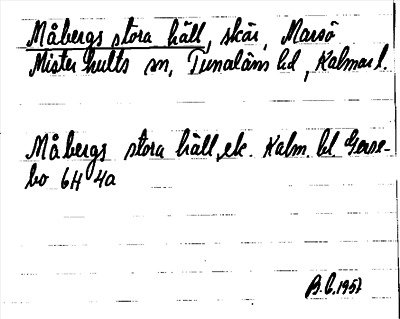 Måbergs stora häll, skär, Marsö
Misterhults sn, Tunaläns hd, Kalmar l.
Måbergs stora häll, ek. Kalm. bl Gerse-
bo 6H 4a
B.C. 1957